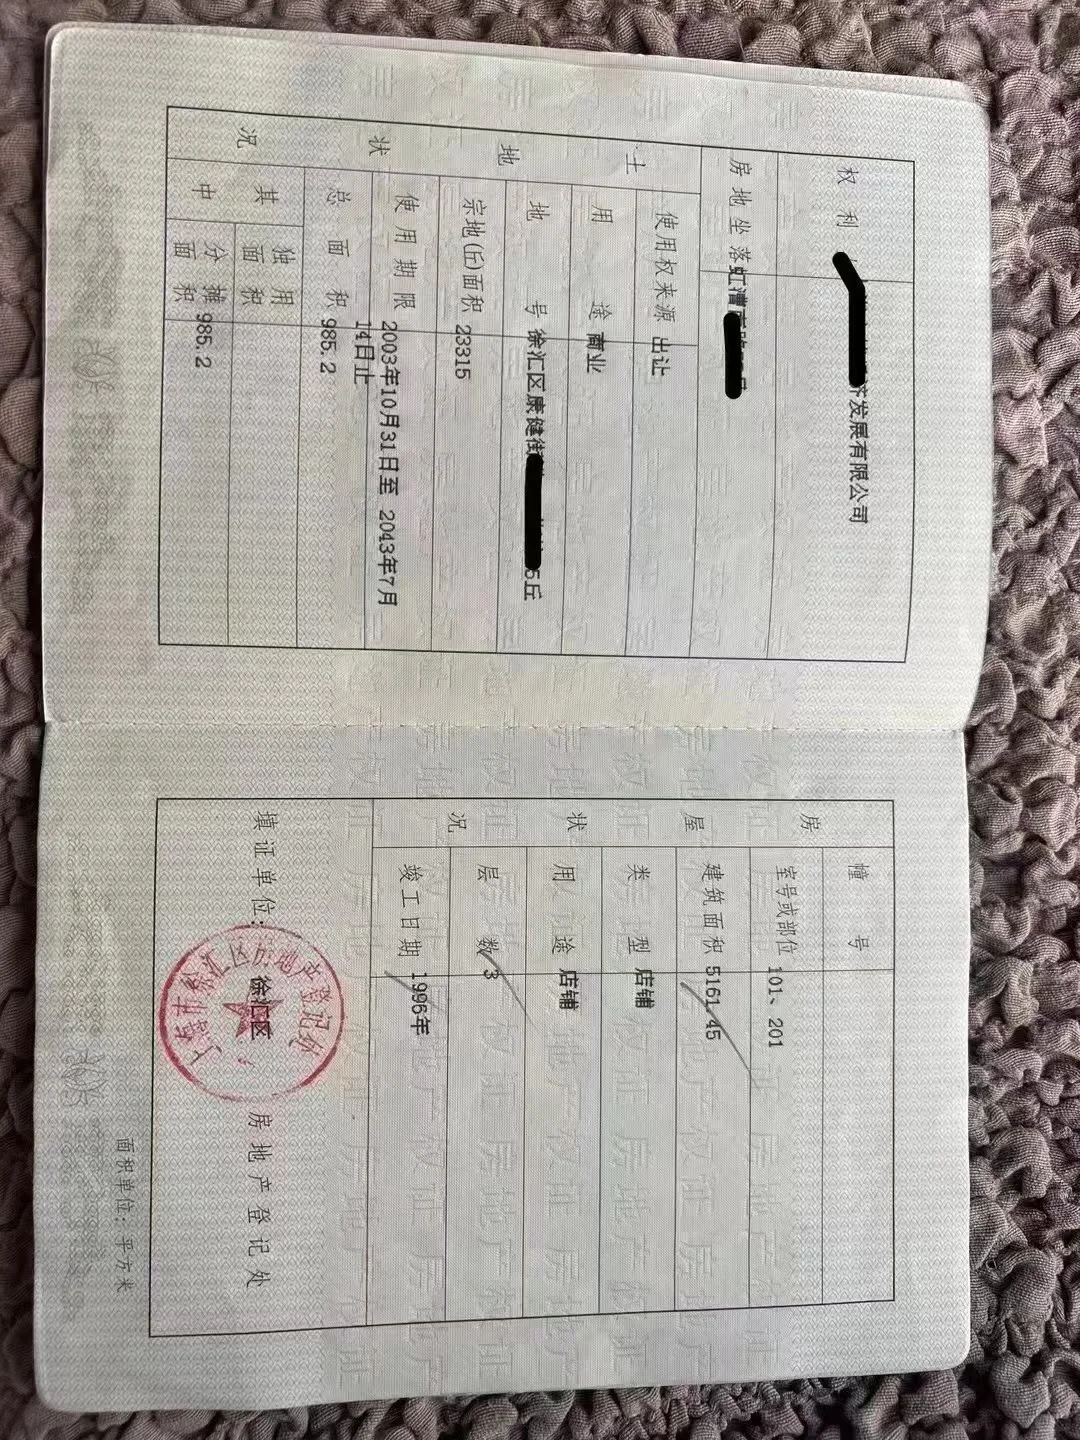 权利
济发展有限公司
房地坐落 虹漕
土地状况
使用权来源 出让
用途 商业
地号 徐汇区康健街 5丘
宗地(丘)面积 23315
使用期限 2003年10月31日至 2043年7月
14日止
总面积 985.2
其中
独用面积
分摊面积 985.2
房屋状况
幢号
室号或部位 101、201
建筑面积 5161.45
类型 店铺
用途 店铺
层数 3
竣工日期 1996年
填证单位: 徐汇区 房地产登记处
上海市徐汇区房地产登记处
面积单位: 平方米